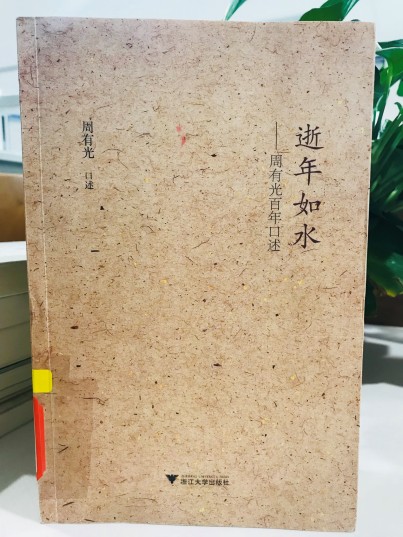 逝年如水
——周有光百年口述
周有光 口述
浙江大学出版社